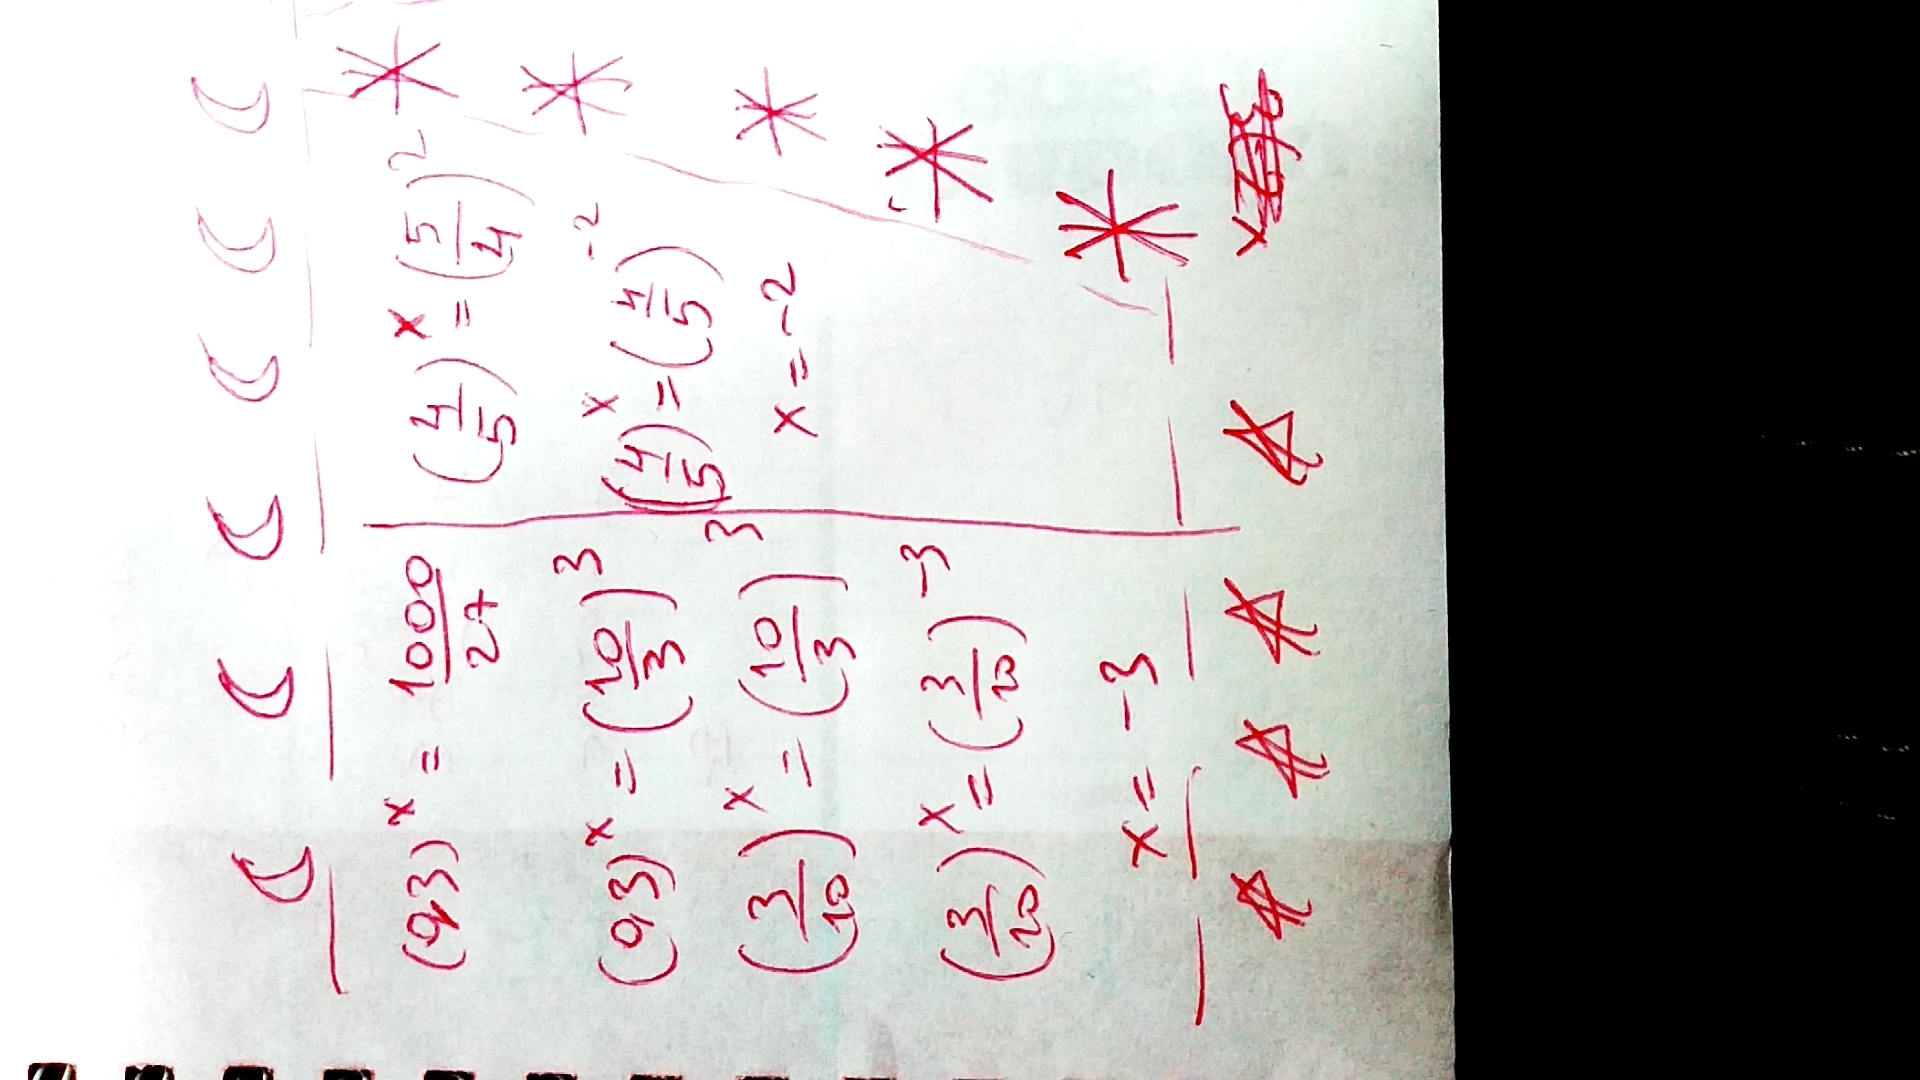 (0,3)^x = 1000/27
(0,3)^x = (10/3)^3
(3/10)^x = (10/3)^3
(3/10)^x = (3/10)^-3
x = -3
(4/5)^x = (5/4)^2
(4/5)^x = (4/5)^-2
x = -2